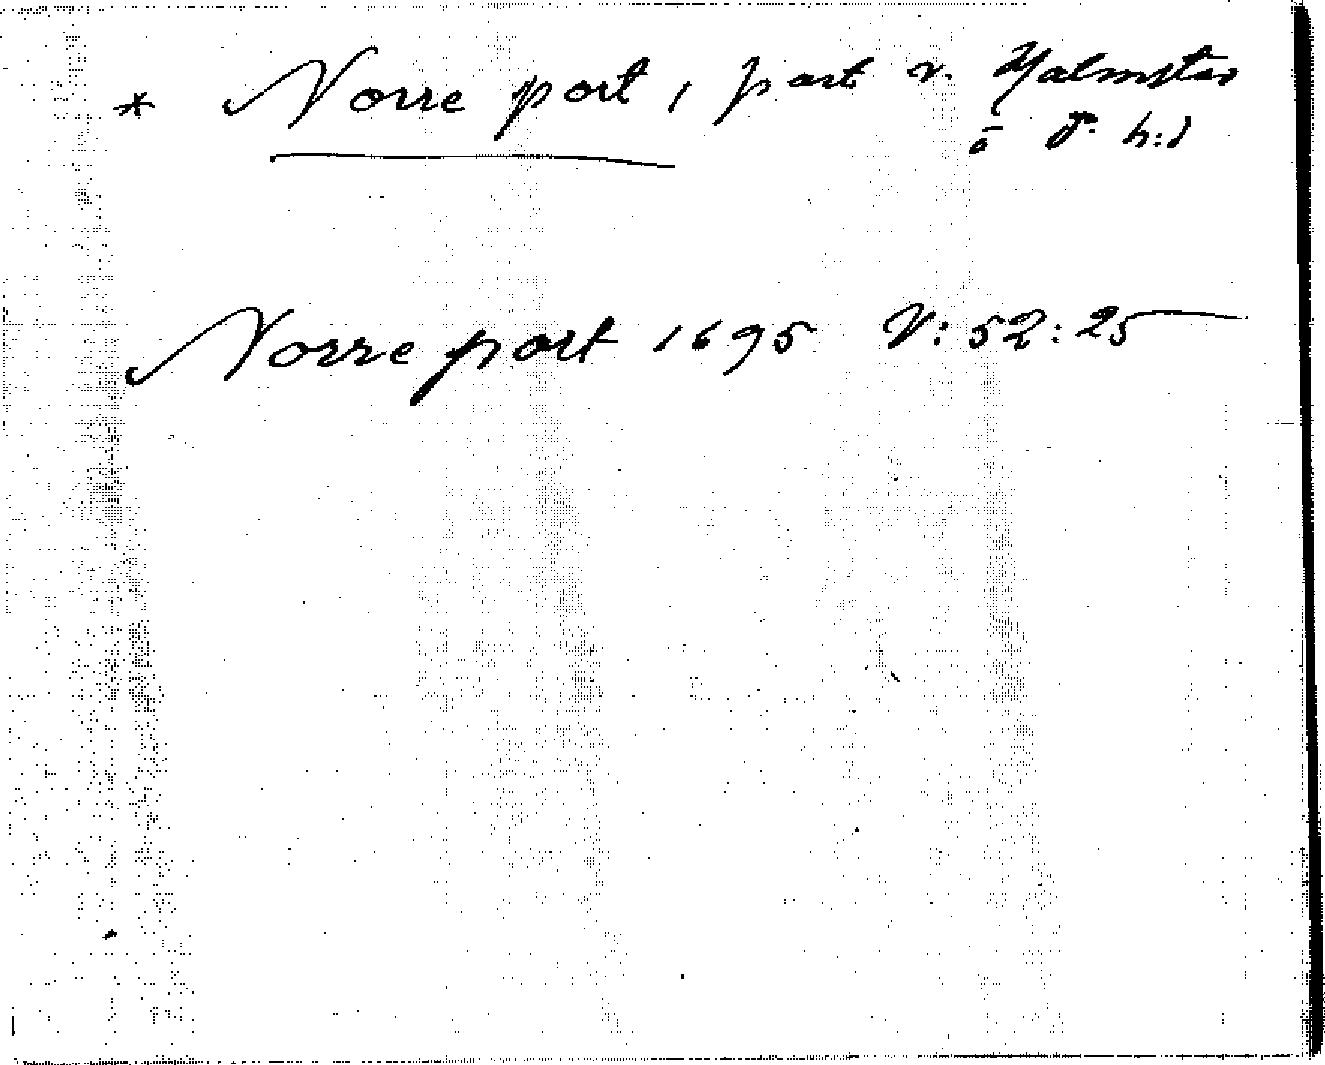 * Norre port, port v. Halmstad
å d:o h:d
Norre port 1695 V:52:25